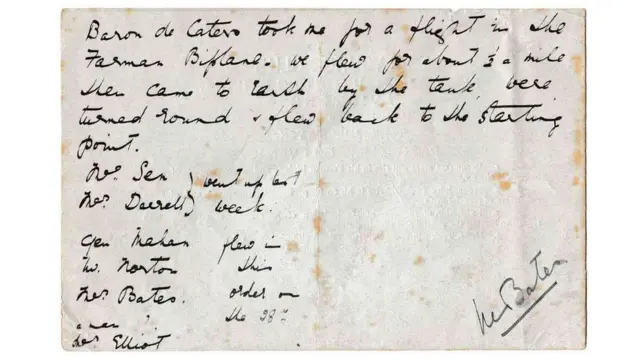 Baron de Caters took me for a flight in the
Farman Biplane. we flew for about ½ a mile
then came to Earth by the tank, were
turned round & flew back to the starting
point.
Mrs. Sen } went up last
Mrs. Darrell } week.
Gen Mahan flew in
Mr. Norton this
Mrs Bates. order on
a man ? the 28th
Mrs Elliot
Mrs Bates